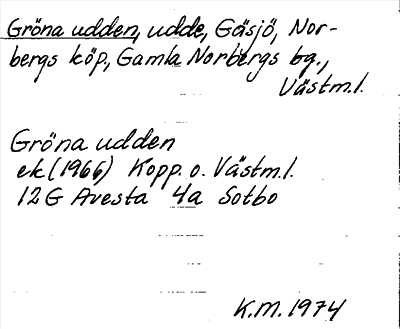 Gröna udden, udde, Gäsjö, Nor-
bergs köp, Gamla Norbergs bg.,
Västm.l.
Gröna udden
ek (1966) Kopp. o. Västm.l.
12G Avesta 4a Sotbo
K.M. 1974